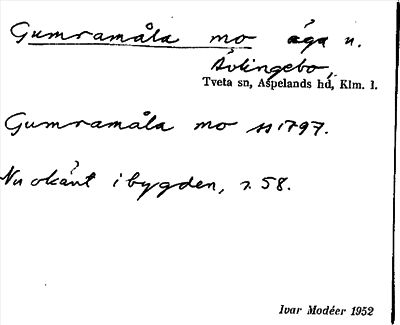 Gumramåla mo äga u.
Åvlingebo,
Tveta sn, Aspelands hd, Klm. l.
Gumramåla mo ss 1797.
Nu okänt i bygden, s. 58.
Ivar Modéer 1952